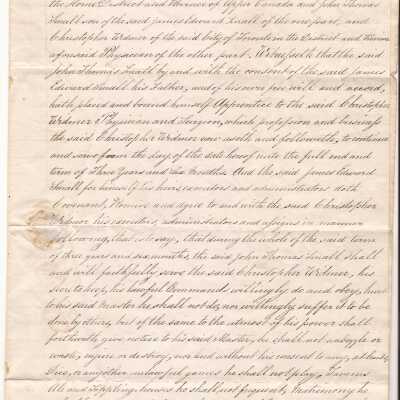 the Home District and Province of Upper Canada and John Thomas
Small son of the said James Edward Small of the one part, and
Christopher Widmer of the said City of Toronto in the District and Province
aforesaid Physician of the other part. Witnesseth that the said
John Thomas Small by and with the consent of the said James
Edward Small his Father, and of his own free will and accord,
hath placed and bound himself Apprentice to the said Christopher
Widmer Physician and Surgeon, which profession and business
the said Christopher Widmer now useth and followeth, to continue
and serve from the day of the date hereof unto the full end and
term of Three Years and Six Months. And the said James Edward
Small for himself his heirs, executors and administrators doth
Covenant, Promise and agree to and with the said Christopher
Widmer his executors, administrators and assigns in manner
following, that is to say, that during the whole of the said term
of three years and six months, the said John Thomas Small shall
and will faithfully serve the said Christopher Widmer, his
secrets keep, his lawful Commands willingly do and obey, hurt
to his said Master he shall not do, nor willingly suffer it to be
done by others, but of the same to the utmost of his power shall
forthwith give notice to his said Master, he shall not embezzle or
waste, nor without his consent to any, at Cards,
Dice, or any other unlawful games he shall not play, Taverns
Ale and Tippling houses he shall not frequent, Matrimony he